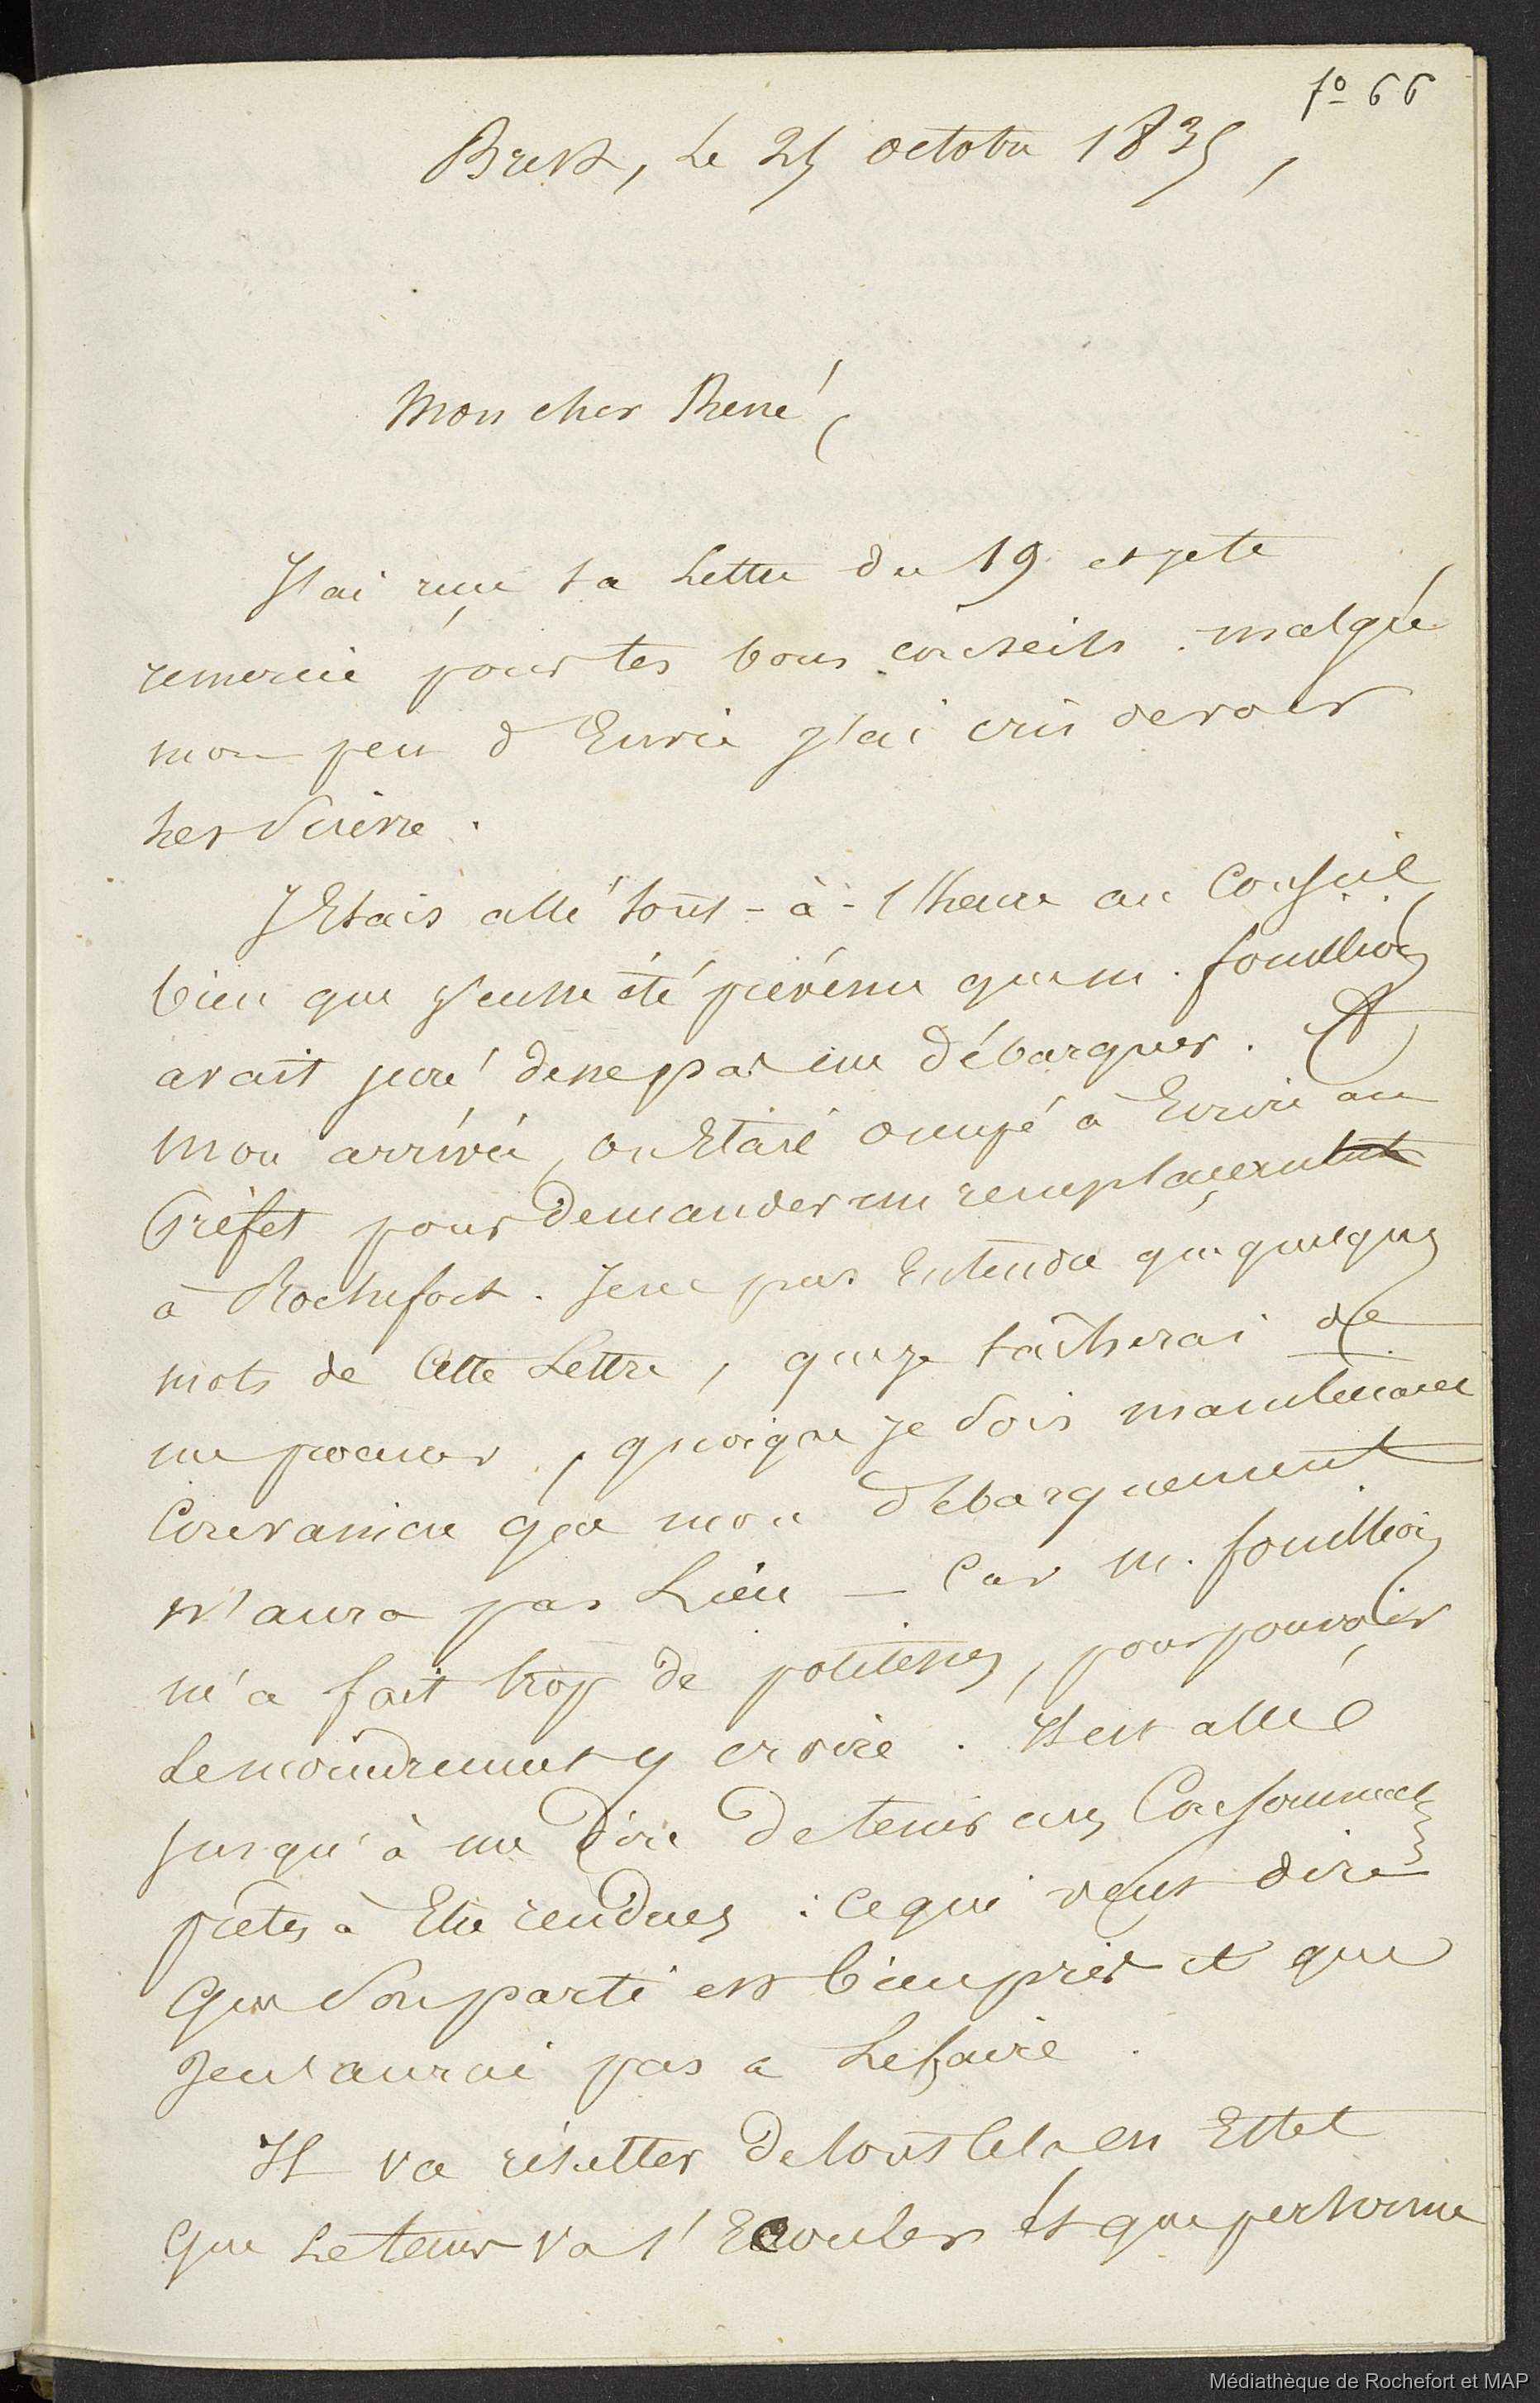 fo 66
Brest, le 25 octobre 1835,
Mon cher René,
J'ai reçu ta lettre du 19 et je te
remercie pour tes bons conseils. malgré
mon peu d'Envie j'ai crû devoir
les suivre.
J'Etais allé tout-à-l'heure au Conseil
bien que j'eusse été prévenu que m. fouilloy
avait juré de ne pas me débarquer. A
mon arrivée, on Etait occupé à Ecrire au
Préfet pour demander un remplaçant
à Rochefort. Je n'ai pas Entendu que quelques
mots de Cette Lettre, que je tâcherai de
me procurer, quoique je sois maintenant
Convaincu que mon débarquement
n'aura pas Lieu — Car m. fouilloy
m'a fait trop de politesses, pour pouvoir
le moindrement y croire. Il est allé
jusqu'à me dire de tenir mes Consommat
prêtes à Etre rendues : ce qui veut dire
Que son parti est bien pris et que
Je n'aurai pas à Le faire.
Il va résulter de tout cela en Effet
Que le tems va s'Ecouler et que personne
Médiathèque de Rochefort et MAP